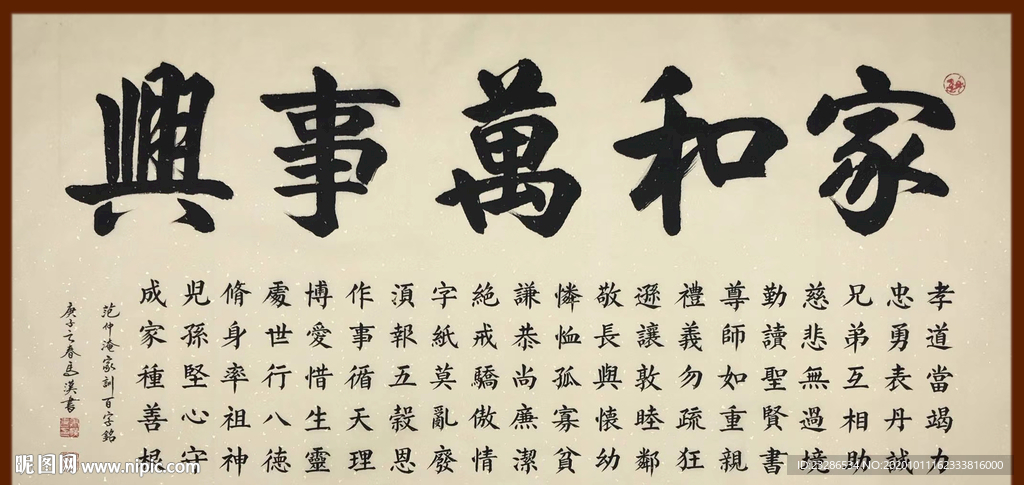 家和萬事興
孝道當竭力
忠勇表丹誠
兄弟互相助
慈悲無過境
勤讀聖賢書
尊師如重親
禮義勿疏狂
遜讓敦睦鄰
敬長與懷幼
憐恤孤寡貧
謙恭尚廉潔
絕戒驕傲情
字紙莫亂廢
湏報五穀恩
作事循天理
博愛惜生靈
處世行八德
脩身率祖神
兒孫堅心守
成家種善根
范仲淹家訓百字銘
庚子之春 漢書
昵图网 www.nipic.com
ID:23286534 NO:20201011162333816000